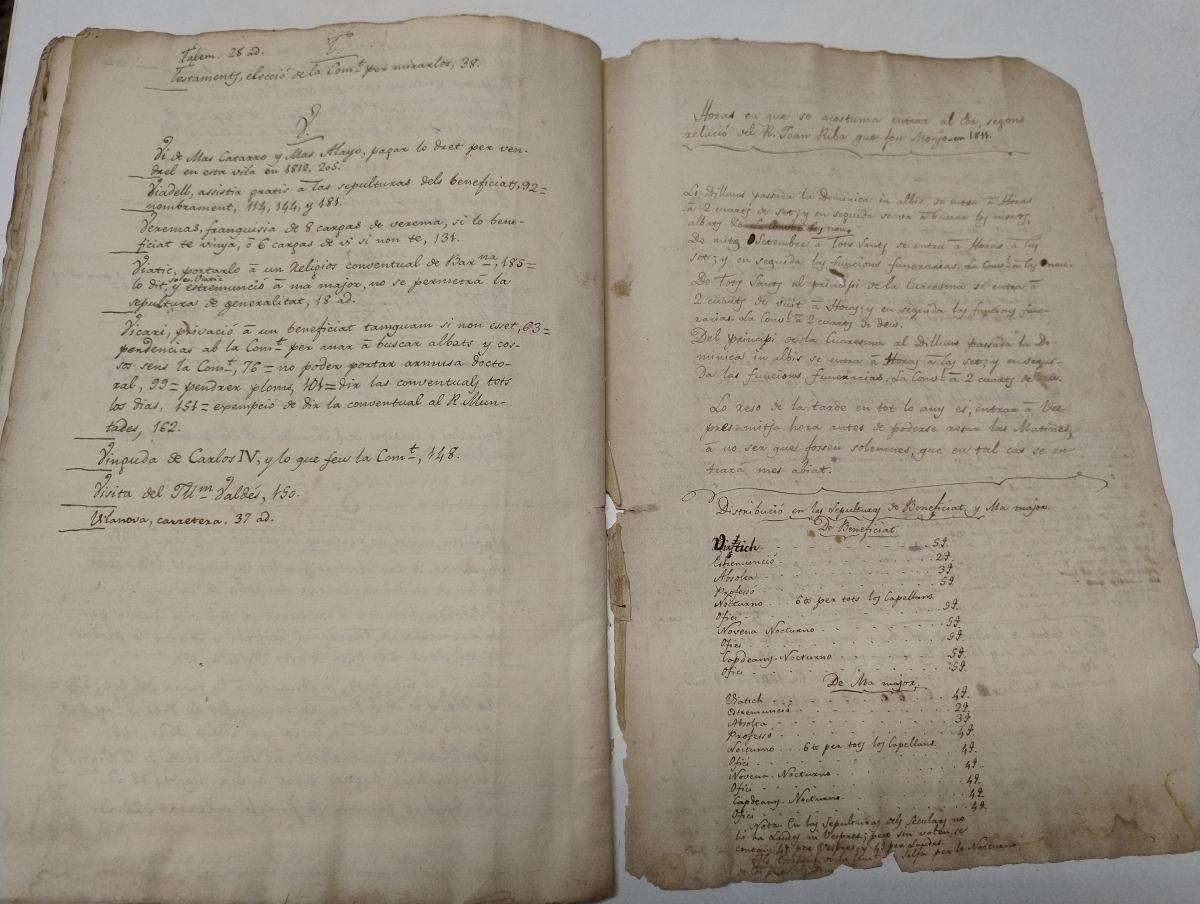 T.
Talem. 28 ad.
Testaments, elecció de la Com.t per mirarlos, 38.
V.
Vi, de Mas Catarro y Mas Alayo, pagar lo dret per ven-
drel en esta vila en 1812, 205.
Viadell, assistir gratis à las sepulturas dels beneficiats, 92=
nombrament, 114, 144, y 181.
Veremas, franquisia de 8 cargas de verema, si lo bene-
ficiat te vinya, ó 6 cargas de vi si non te, 131.
Viatic, portarlo à un Religiós conventual de Bar.na, 185=
lo dit, y estremunció à ma major, no se permetrá la
sepultura de generalitat, 18 ad.
Vicari, privació à un beneficiat tamquam si non esset, 63=
pendencias ab la Com.t per anar à buscar albats y cos-
sos sens la Com.t, 76= no poder portar armusa docto-
ral, 99= pendrer ploms, 101= dir las conventuals tots
los dias, 151= exempció de dir la conventual al R. Mun-
tades, 162.
Vinguda de Carlos IV, y lo que feu la Com.t, 148.
Visita del Illm Valdés, 150.
Vilanova, carretera. 37 ad.
Horas en que se acostuma entrar al Cor, segons
relació del R. Joan Riba que feu Monjo en 1844.
Lo dilluns passada la Dominica in albis se entra à Horas
à 2 cuarts de set; y en seguida se va à buscar los morts,
albats
De mitg Setembre à Tots Sants se entra à Horas à las
set; y en seguida las funcions funerarias. La Conv.t à las nou.
De Tots Sants al principi de la Cuaresma se entra à
2 cuarts de vuit à Horas; y en seguida las funcions fune-
rarias. La Conv.t à 2 cuarts de deu.
Del principi de la Cuaresma al dilluns passada la Do-
minica in albis se entra à Horas à las set; y en segui-
da las funcions funerarias. La Conv.t à 2 cuarts de
Lo reso de la tarde en tot lo any es, entrar à Ves-
pres mitja hora antes de poderse resar las Matines,
à no ser que fossen solemnes, que en tal cas se en
trará mes abiat.
Distribució en las Sepulturas de Beneficiat, y Ma major.
De Beneficiat.
Viatich 5
Estremunció 2
Absolta 3
Professó 5
Nocturno 6 per tots los Capellans.
Ofici 5
Novena Nocturno 5
Ofici 5
Capdeany. Nocturno 5
Ofici 5
De Ma major.
Viatich 4
Estremunció 2
Absolta 3
Professó 4
Nocturno 6 per tots los Capellans.
Ofici 4
Novena. Nocturno 4
Ofici 4
Capdeany. Nocturno 4
Ofici 4
Nota. En las Sepulturas dels Seculars no
hi ha Laudes ni Vespres; pero
contan per Vespres, y per Laudes.
per lo Nocturno